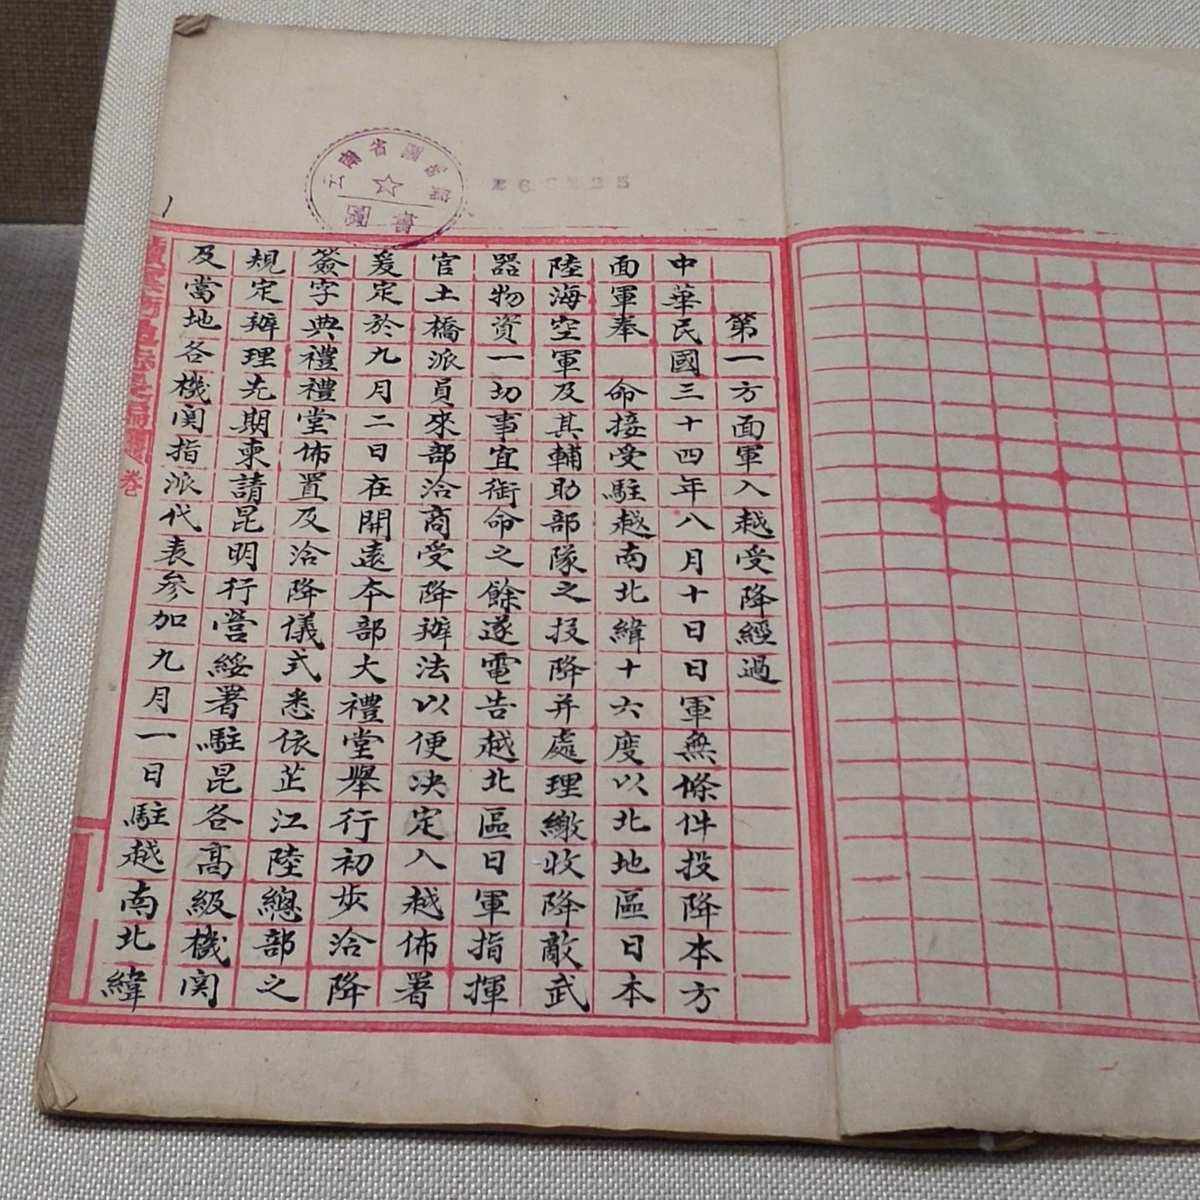 云南省圖書館
圖書
第一方面軍入越受降經過
中華民國三十四年八月十日日軍無條件投降本方
面軍奉 命接受駐越南北緯十六度以北地區日本
陸海空軍及其輔助部隊之投降并處理繳收降敵武
器物資一切事宜銜命之餘遂電告越北區日軍指揮
官土橋派員來部洽商受降辦法以便決定入越佈署
爰定於九月二日在開遠本部大禮堂舉行初步洽降
簽字典禮禮堂佈置及洽降儀式悉依芷江陸總部之
規定辦理先期柬請昆明行營綏署駐昆各高級機関
及當地各機関指派代表參加九月一日駐越南北緯
卷